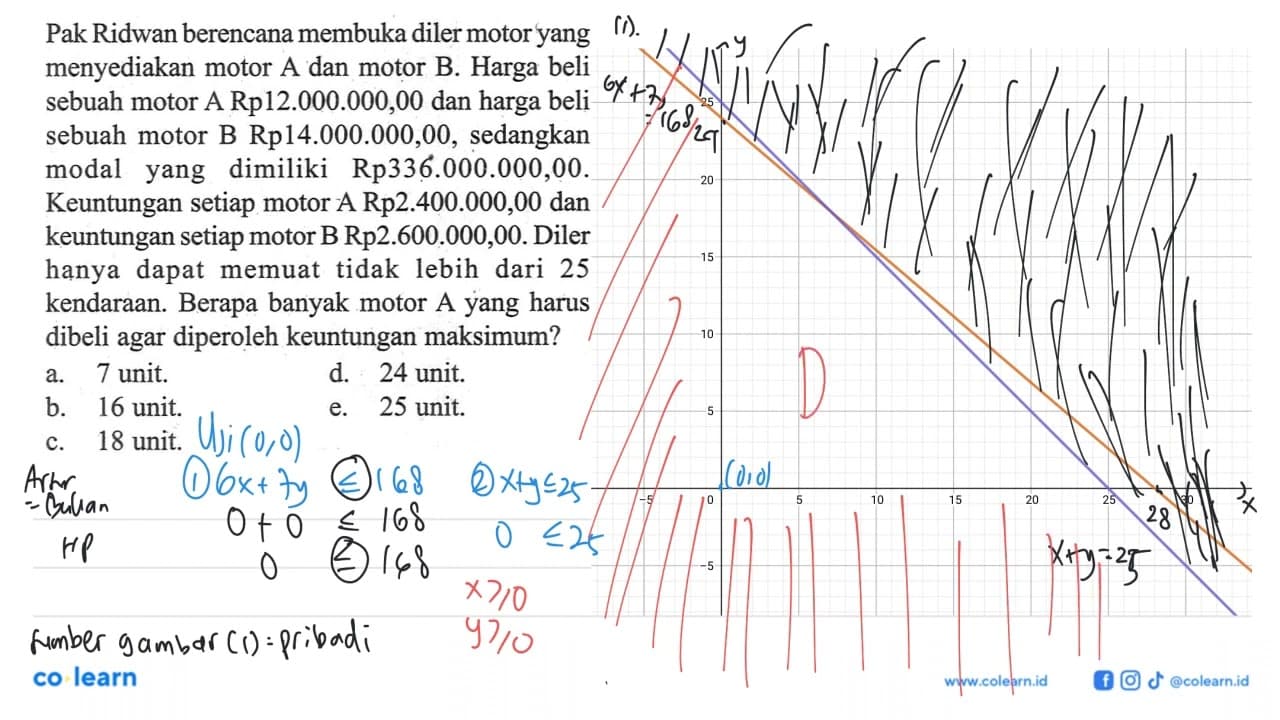 Pak Ridwan berencana membuka diler motor yang
menyediakan motor A dan motor B. Harga beli
sebuah motor A Rp12.000.000,00 dan harga beli
sebuah motor B Rp14.000.000,00, sedangkan
modal yang dimiliki Rp336.000.000,00.
Keuntungan setiap motor A Rp2.400.000,00 dan
keuntungan setiap motor B Rp2.600.000,00. Diler
hanya dapat memuat tidak lebih dari 25
kendaraan. Berapa banyak motor A yang harus
dibeli agar diperoleh keuntungan maksimum?
a. 7 unit.
b. 16 unit.
c. 18 unit.
d. 24 unit.
e. 25 unit.
Uji (0,0)
① 6x + 7y ≤ 168
0 + 0 ≤ 168
0 ≤ 168
② x+y ≤ 25
0 ≤ 25
x ≥ 0
y ≥ 0
HP
sumber gambar (1) = pribadi
(1).
y
6x + 7y
= 168
25
20
15
10
5
D
(0,0)
-5 0 5 10 15 20 25 30
x
28
-5
x+y=25
co learn
www.colearn.id
@colearn.id